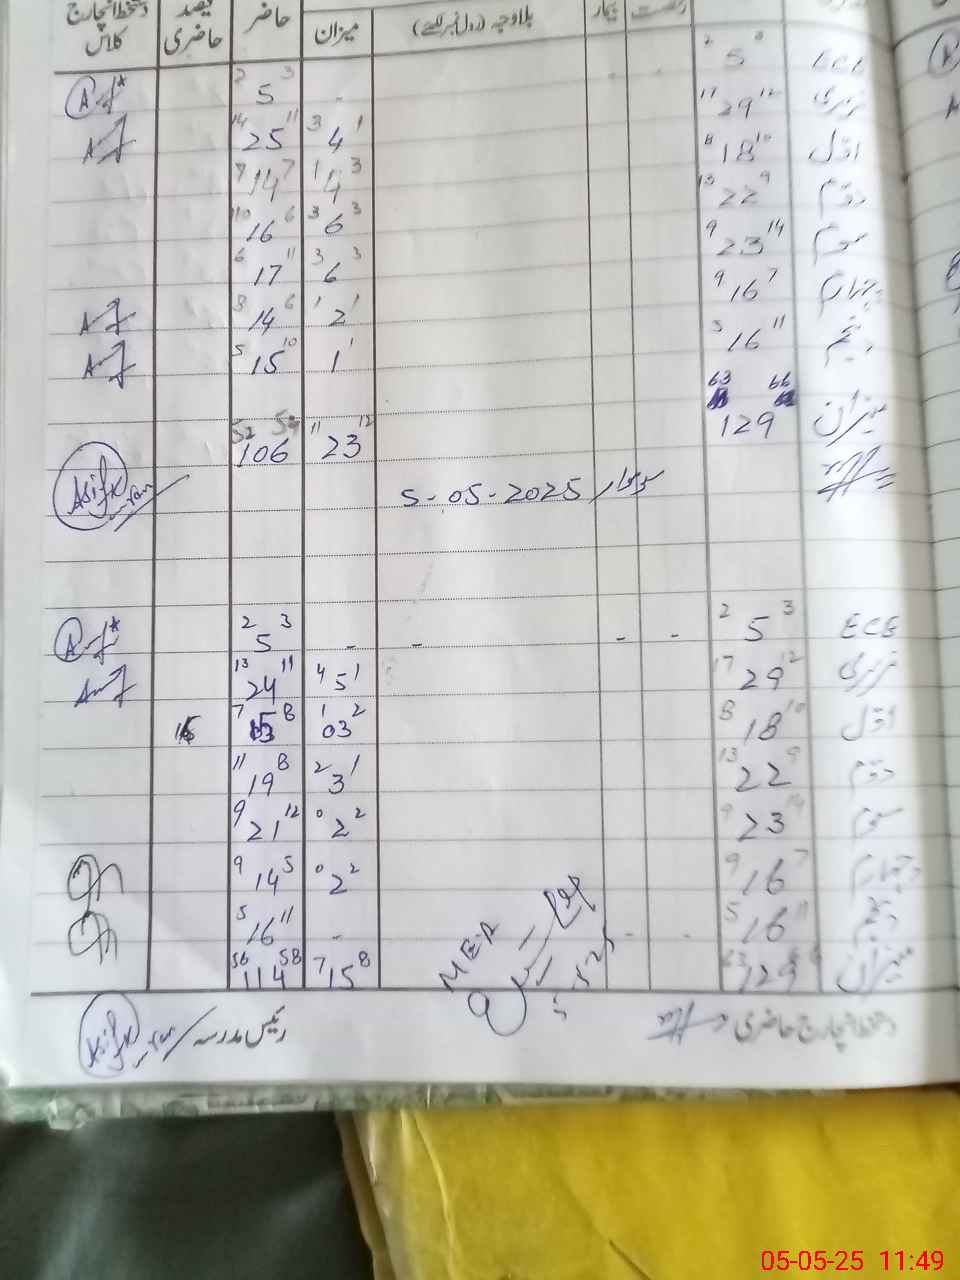 بیمار بلاوجہ (رول نمبر لکھئے) میزان حاضر فیصد حاضری دستخط انچارج کلاس
ECE 2 5 3 - - - 2 5 3
نرسری 17 29 12 3 4 1 14 25 11
اوّل 8 18 10 1 4 3 7 14 7
دوم 13 22 9 3 6 3 10 16 6
سوم 9 23 14 3 6 3 6 17 11
چہارم 9 16 7 1 2 1 8 14 6
پنجم 5 16 11 1 1 5 15 10
میزان 63 129 66 11 23 12 52 106 54
5-05-2025
ECE 2 5 3 - - - - 2 5 3
نرسری 17 29 12 4 5 1 13 24 11
اوّل 8 18 10 1 03 2 7 15 8
دوم 13 22 9 2 3 1 11 19 8
سوم 9 23 14 0 2 2 9 21 12
چہارم 9 16 7 0 2 2 9 14 5
پنجم 5 16 11 - - - 5 16 11
میزان 63 129 7 15 8 56 114 58
MEA
دستخط انچارج حاضری رئیس مدرسہ
05-05-25 11:49